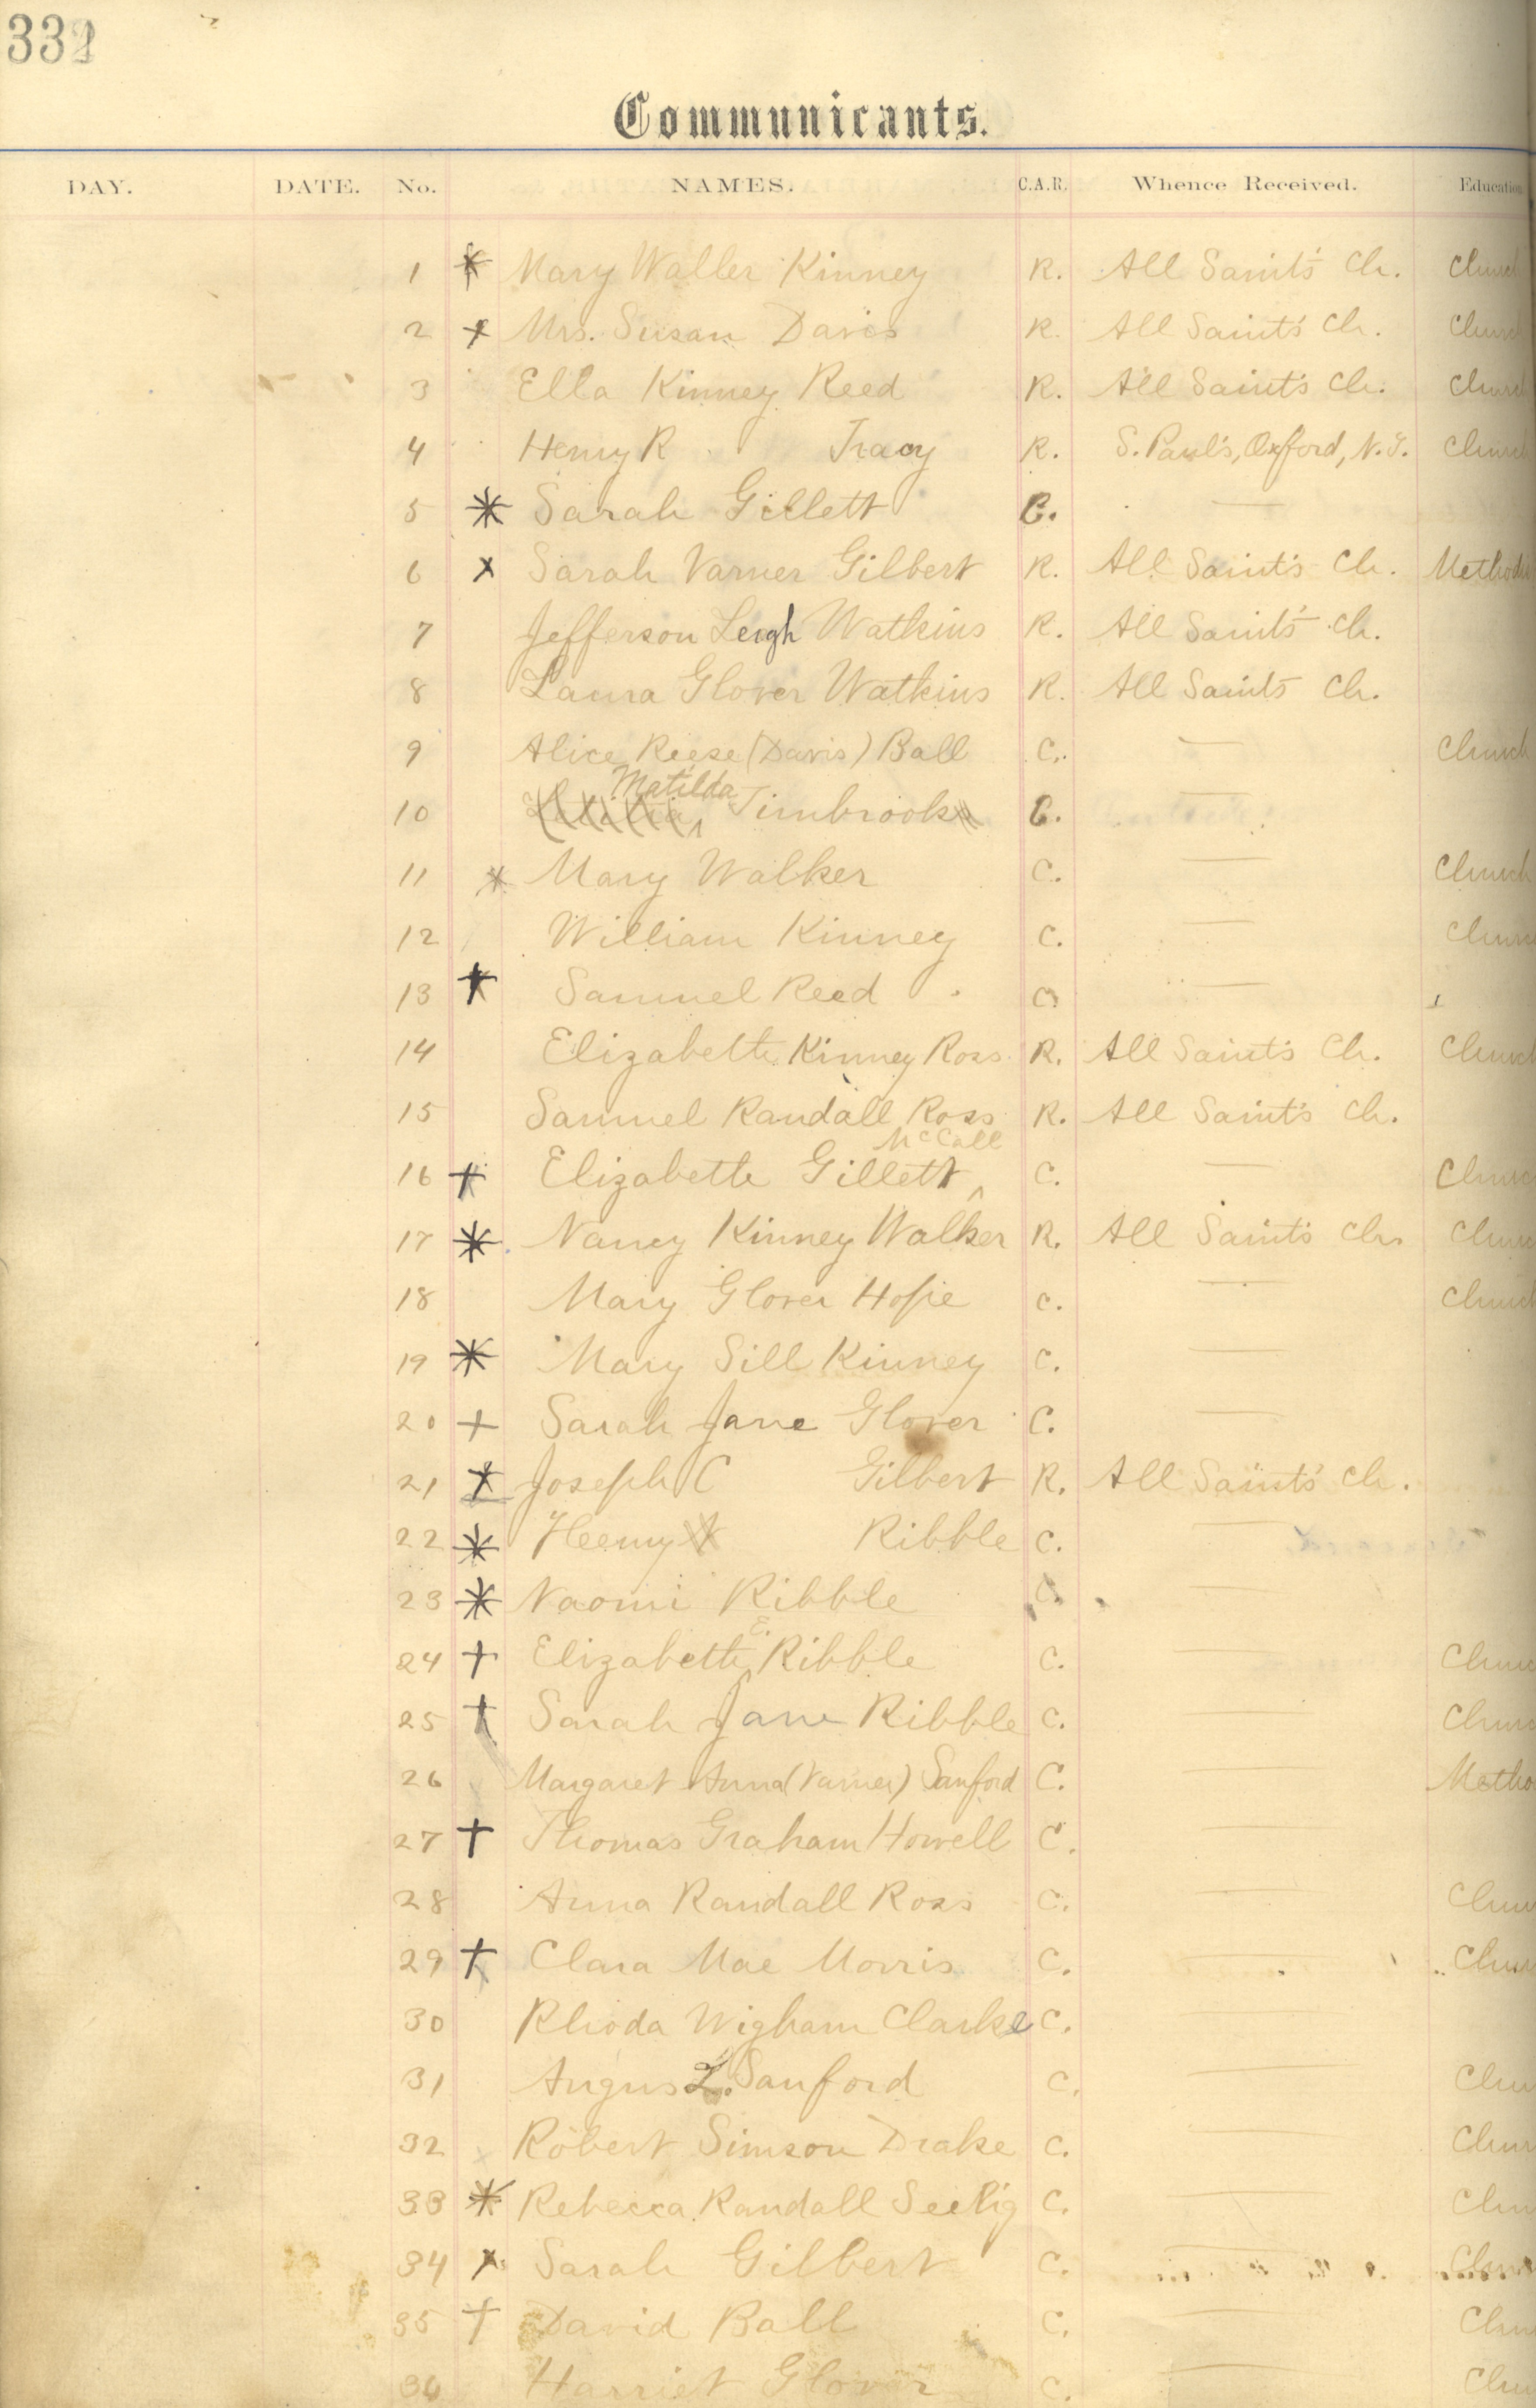 332
Communicants.
DAY. DATE. No. NAMES. C.A.R. Whence Received. Education
1 Mary Waller Kinney R. All Saints' Ch. Church
2 Mrs. Susan Davis R. All Saints' Ch. Church
3 Ella Kinney Reed R. All Saint's Ch. Church
4 Henry R Tracy R. S. Paul's, Oxford, N.Y. Church
5 Sarah Gillett C. —
6 Sarah Varner Gilbert R. All Saint's Ch. Methodis
7 Jefferson Leigh Watkins R. All Saints' Ch.
8 Laura Glover Watkins R. All Saints' Ch.
9 Alice Reese (Davis) Ball C. — Church
Matilda
10 Timbrook C. —
11 Mary Walker C. — Church
12 William Kinney C. — Church
13 Samuel Reed C. —
14 Elizabeth Kinney Ross R. All Saint's Ch. Church
15 Samuel Randall Ross R. All Saint's Ch.
McCall
16 Elizabeth Gillett C. — Church
17 Nancy Kinney Walker R. All Saint's Ch. Church
18 Mary Glover Hope C. — Church
19 Mary Sill Kinney C. —
20 Sarah Jane Glover C. —
21 Joseph C Gilbert R. All Saints' Ch.
22 Henry Ribble C. —
23 Naomi Ribble C. —
E.
24 Elizabeth Ribble C. — Churc
25 Sarah Jane Ribble C. — Churc
26 Margaret Anna (Varner) Sanford C. — Metho
27 Thomas Graham Howell C. —
28 Anna Randall Ross C. — Chur
29 Clara Mae Morris C. — Chur
30 Rhoda Wigham Clarke C. —
31 Angus L. Sanford C. — Chur
32 Robert Simson Drake C. — Chur
33 Rebecca Randall Seelig C. — Chur
34 Sarah Gilbert C. — Chur
35 David Ball C. — Chur
36 Harriet Glover C. — Chur